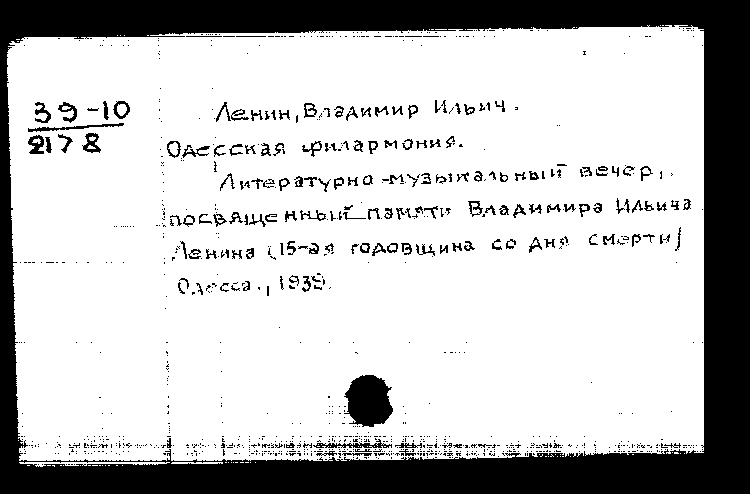 39-10
2178
Ленин, Владимир Ильич.
Одесская филармония.
Литературно-музыкальный вечер,
посвященный памяти Владимира Ильича
Ленина (15-ая годовщина со дня смерти)
Одесса., 1939.